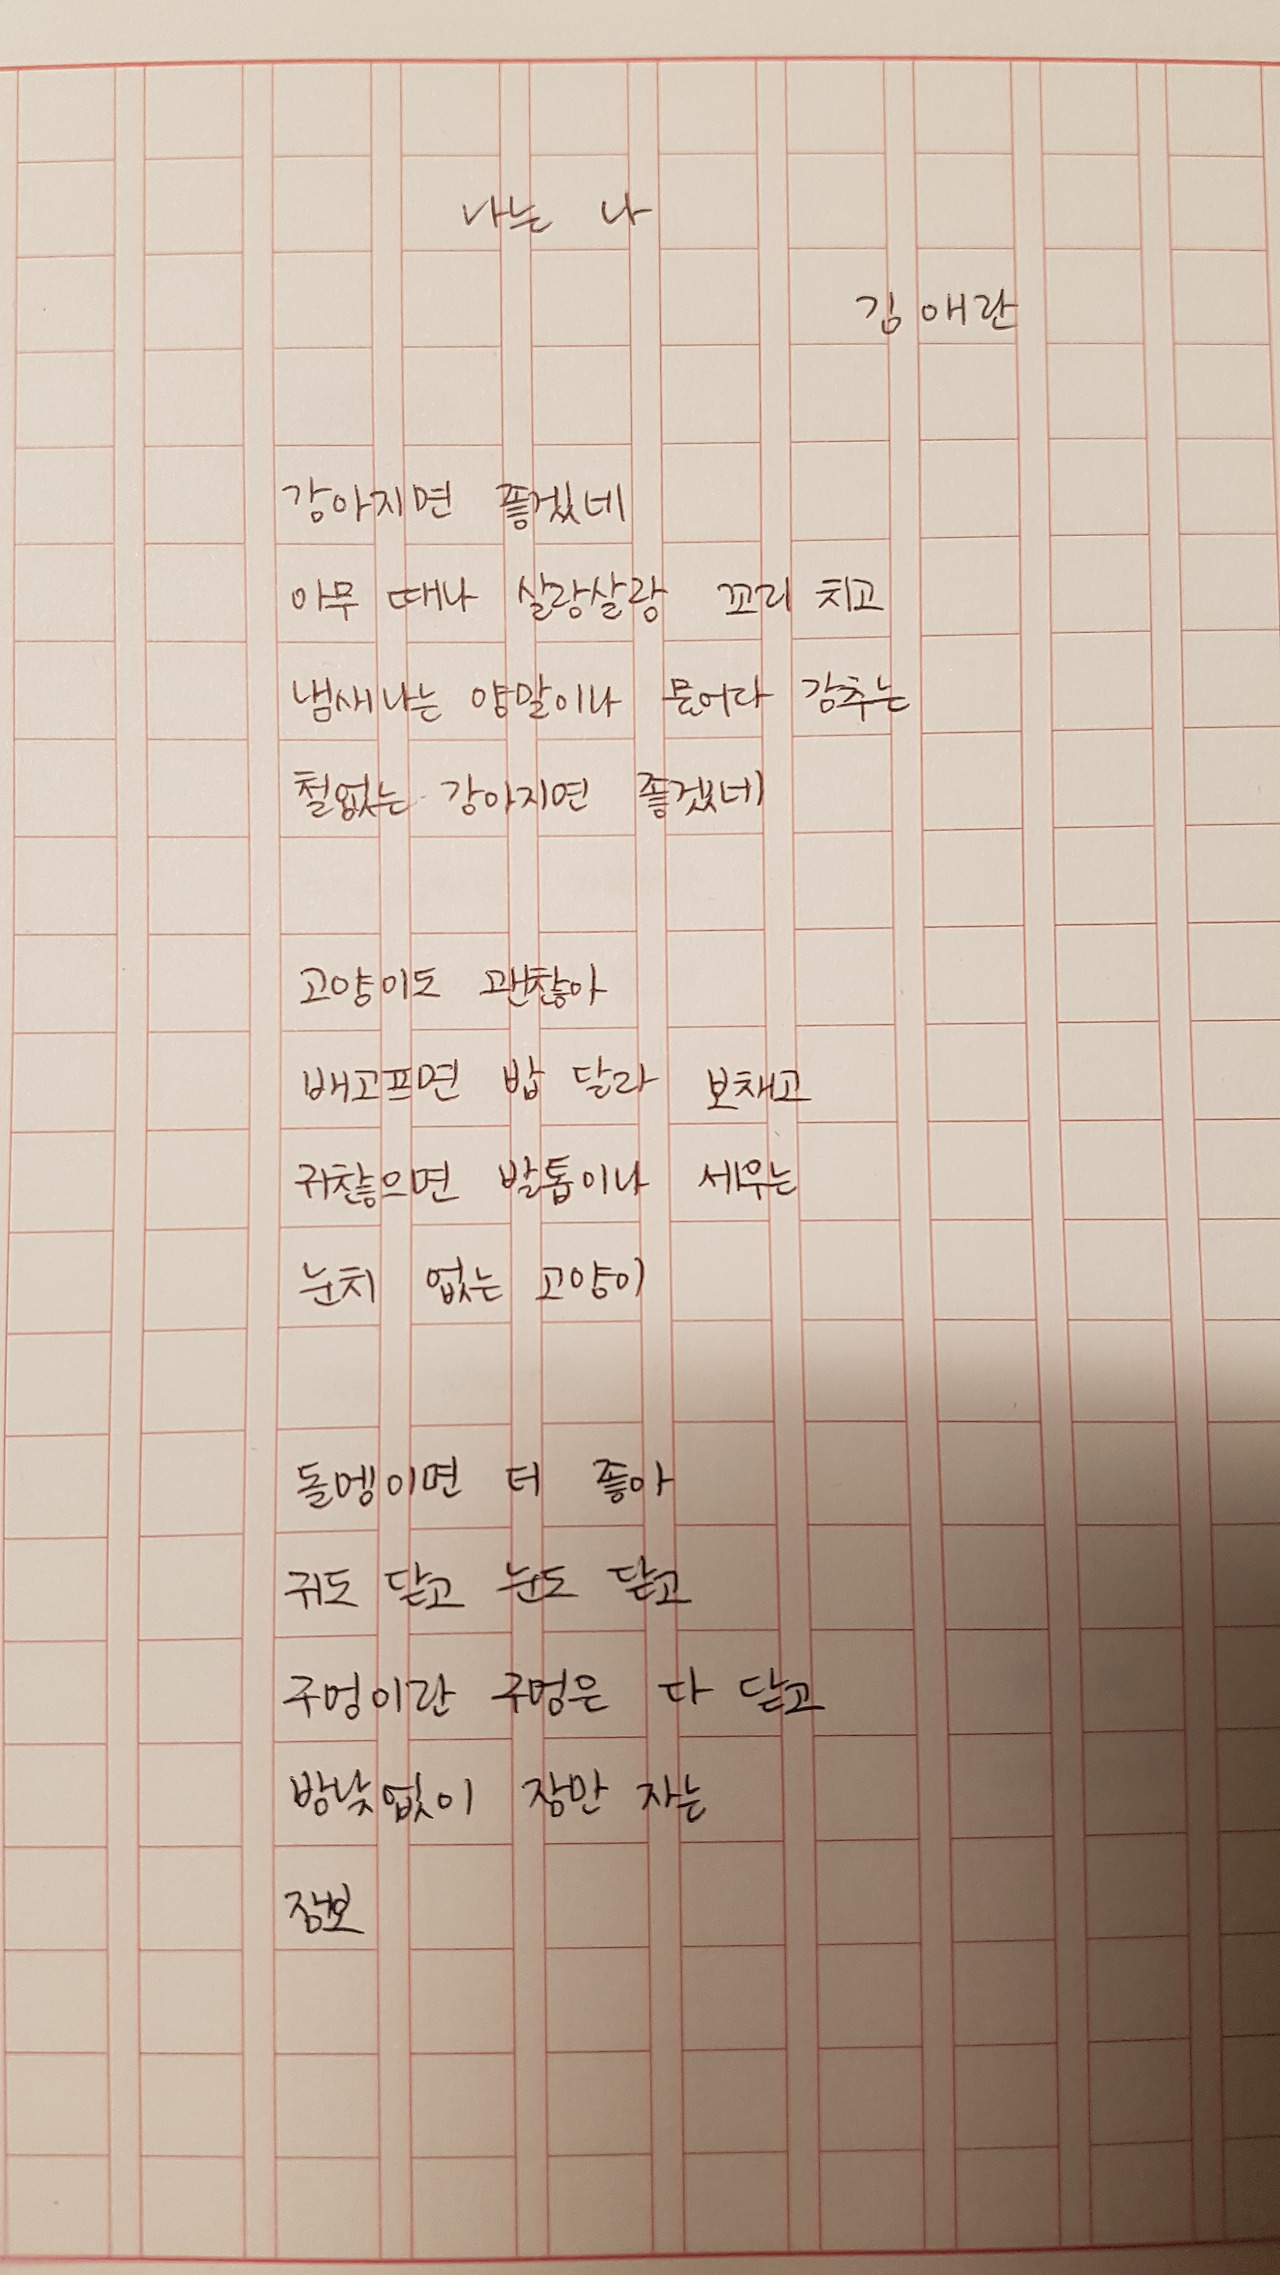 나는 나
김애란
강아지면 좋겠네
아무 때나 살랑살랑 꼬리 치고
냄새나는 양말이나 물어다 감추는
철없는 강아지면 좋겠네
고양이도 괜찮아
배고프면 밥 달라 보채고
귀찮으면 발톱이나 세우는
눈치 없는 고양이
돌멩이면 더 좋아
귀도 닫고 눈도 닫고
구멍이란 구멍은 다 닫고
밤낮없이 잠만 자는
잠보